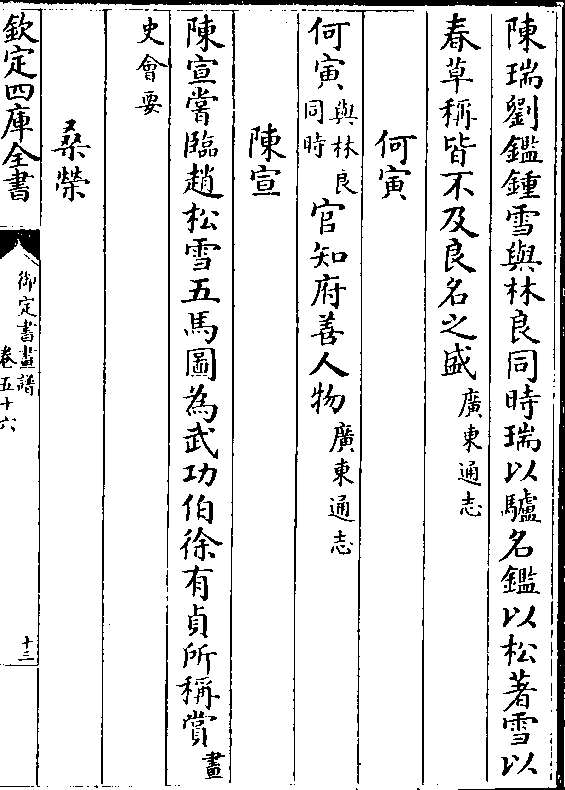 陳瑞劉鑑鍾雪與林良同時瑞以驢名鑑以松著雪以
春草稱皆不及良名之盛廣東通志
何寅
何寅與林良同時官知府善人物廣東通志
陳宣
陳宣嘗臨趙松雪五馬圖為武功伯徐有貞所稱賞畫
史會要
桑榮
欽定四庫全書
御定書畫譜
卷五十六
十三